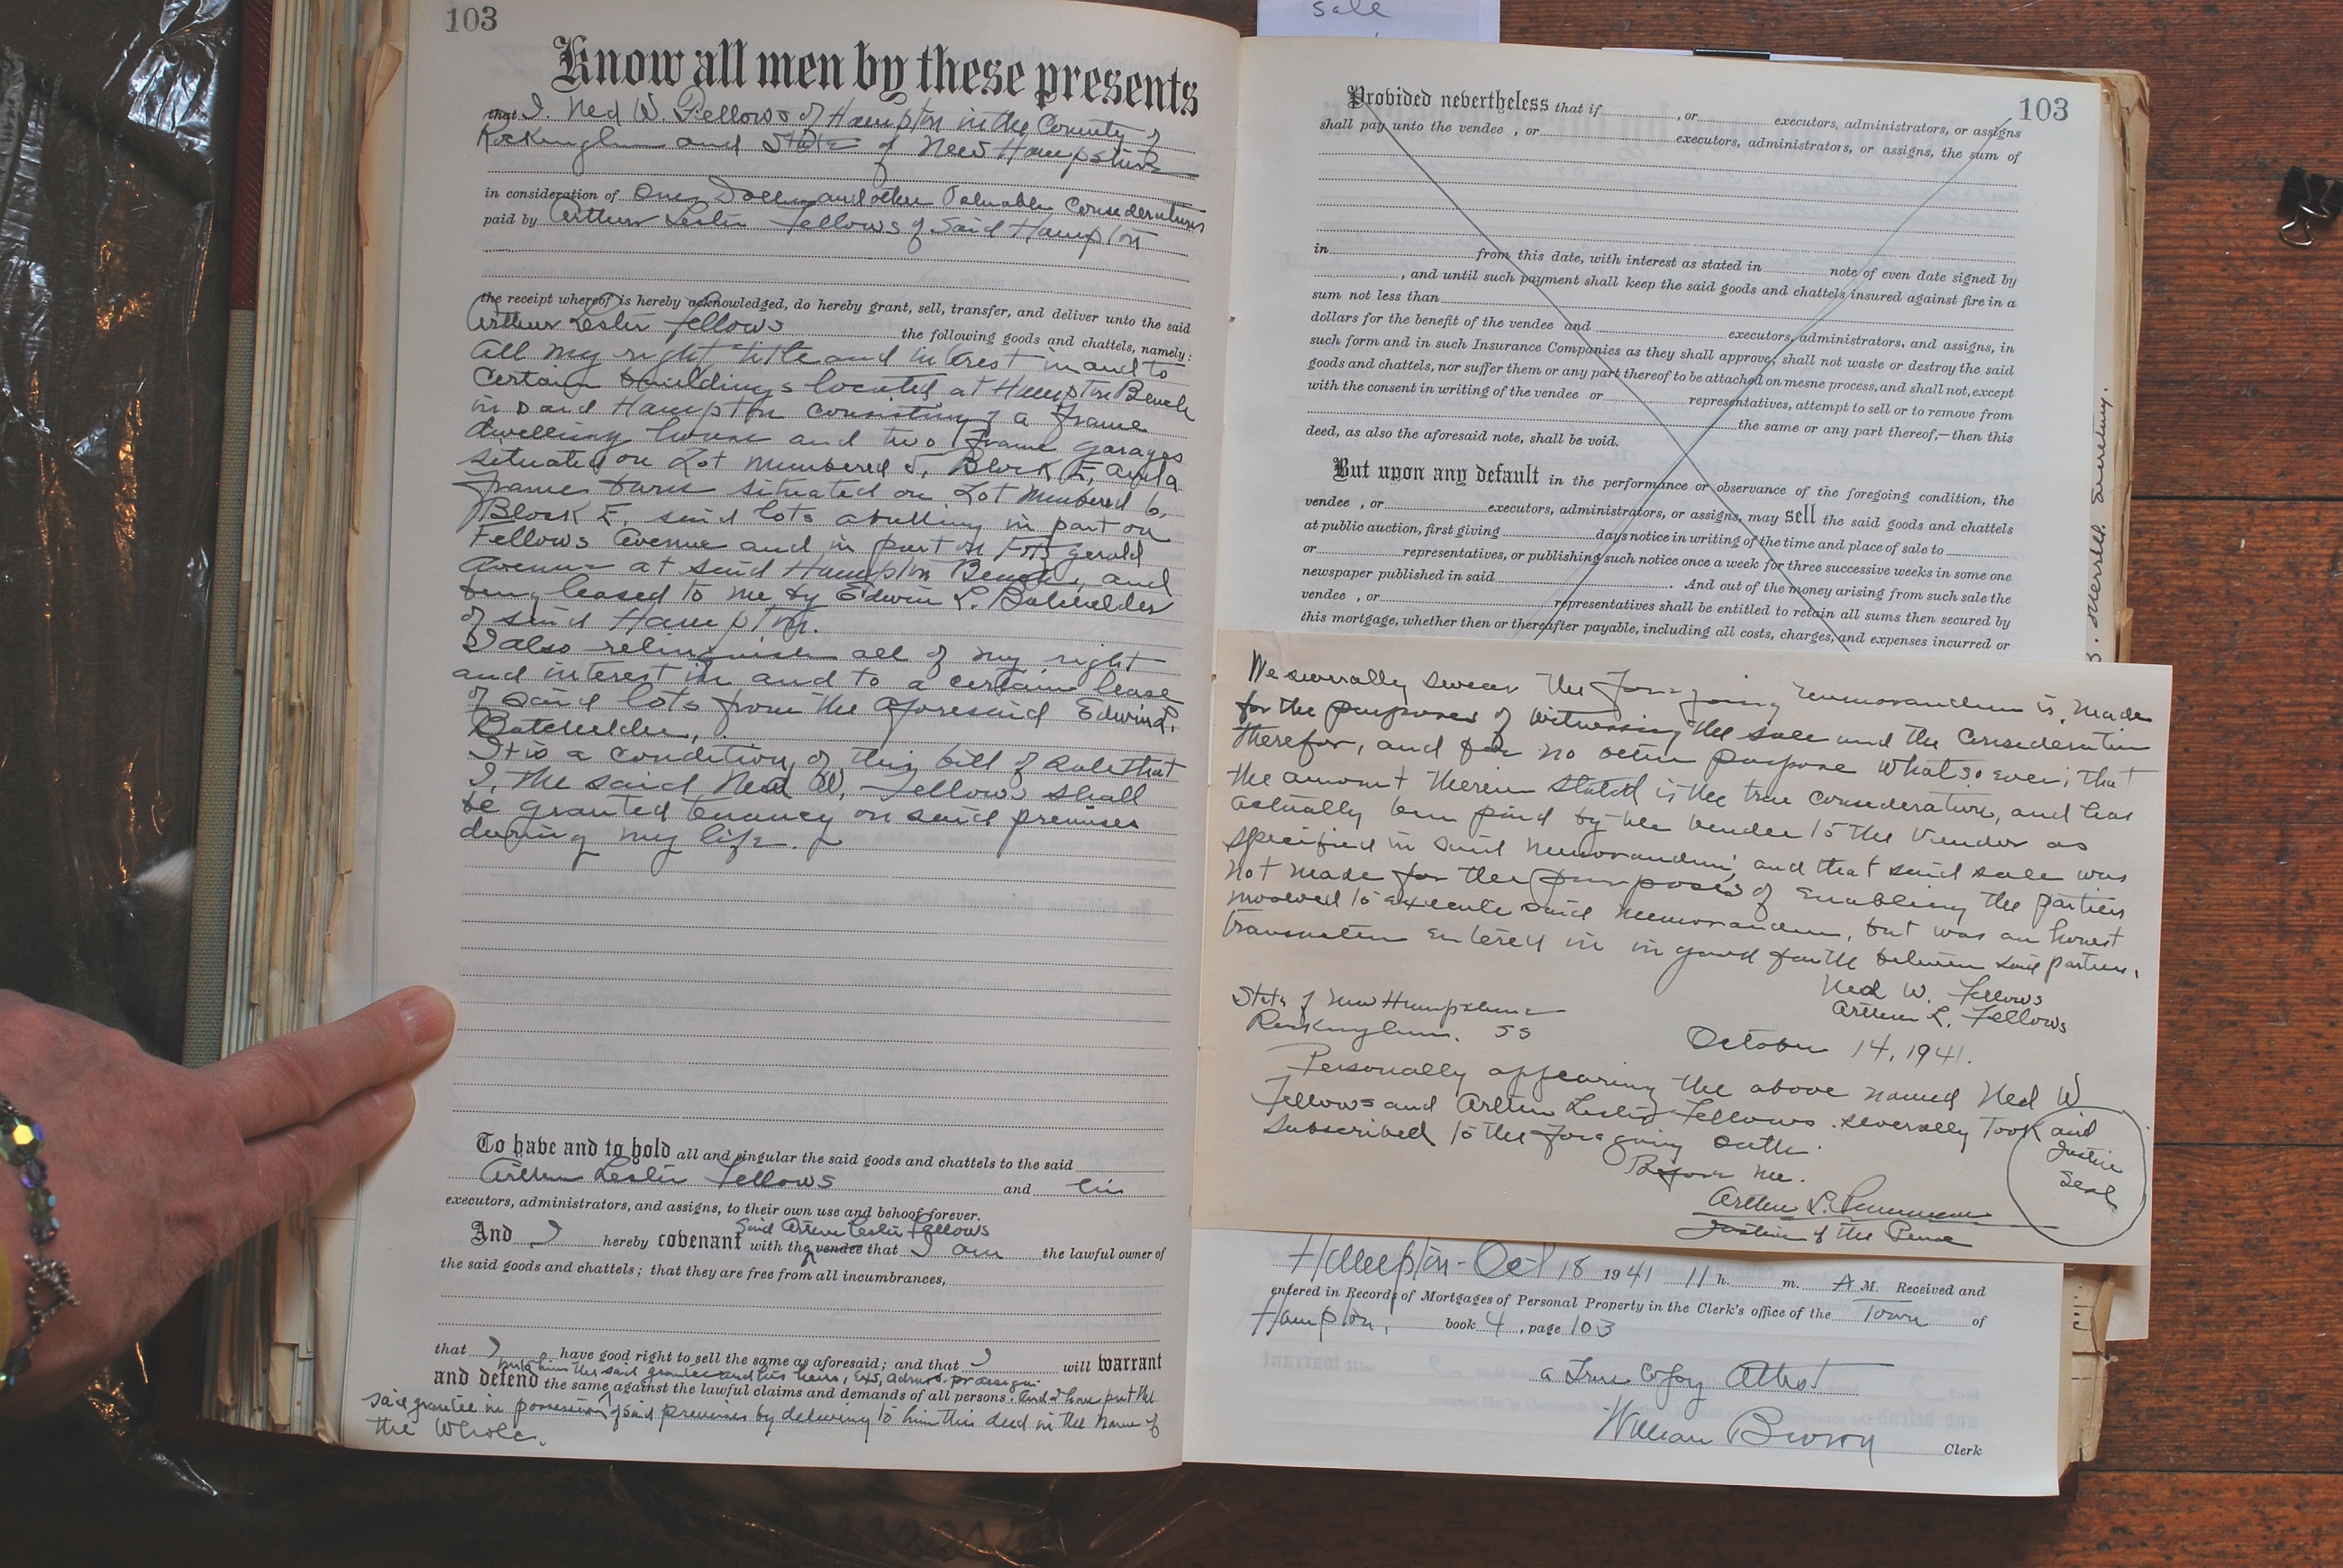 103
Know all men by these presents
that I, Ned W. Fellows of Hampton in the County of
Rockingham and State of New Hampshire
in consideration of One Dollar and other Valuable Considerations
paid by Arthur Leslie Fellows of Said Hampton
the receipt whereof is hereby acknowledged, do hereby grant, sell, transfer, and deliver unto the said
Arthur Leslie Fellows the following goods and chattels, namely:
All my right title and interest in and to
Certain buildings located at Hampton Beach
in said Hampton consisting of a frame
dwelling house and two frame garages
situated on Lot numbered 5, Block E, and a
frame barn situated on Lot numbered 6,
Block E, said lots abutting in part on
Fellows Avenue and in part on Fitz Gerald
Avenue at said Hampton Beach, and
being leased to me by Edwin L. Batchelder
of said Hampton.
I also relinquish all of my right
and interest in and to a certain lease
of said lots from the aforesaid Edwin L.
Batchelder.
It is a condition of this bill of sale that
I, the said Ned W. Fellows shall
be granted tenancy on said premises
during my life.
To have and to hold all and singular the said goods and chattels to the said
Arthur Leslie Fellows and his
executors, administrators, and assigns, to their own use and behoof forever.
Said Arthur Leslie Fellows
And I hereby covenant with the vendee that I am the lawful owner of
the said goods and chattels; that they are free from all incumbrances,
that I have good right to sell the same as aforesaid; and that I will warrant
unto him the said grantee and his heirs, Exs, admrs. or assigns
and defend the same against the lawful claims and demands of all persons. And I have put the
said grantee in possession of said premises by delivering to him this deed in the name of
the Whole.
sale
103
Provided nevertheless that if , or executors, administrators, or assigns
shall pay unto the vendee , or executors, administrators, or assigns, the sum of
in from this date, with interest as stated in note of even date signed by
, and until such payment shall keep the said goods and chattels insured against fire in a
sum not less than
dollars for the benefit of the vendee and executors, administrators, and assigns, in
such form and in such Insurance Companies as they shall approve, shall not waste or destroy the said
goods and chattels, nor suffer them or any part thereof to be attached on mesne process, and shall not, except
with the consent in writing of the vendee or representatives, attempt to sell or to remove from
the same or any part thereof,—then this
deed, as also the aforesaid note, shall be void.
But upon any default in the performance or observance of the foregoing condition, the
vendee , or executors, administrators, or assigns, may sell the said goods and chattels
at public auction, first giving days notice in writing of the time and place of sale to
or representatives, or publishing such notice once a week for three successive weeks in some one
newspaper published in said . And out of the money arising from such sale the
vendee , or representatives shall be entitled to retain all sums then secured by
this mortgage, whether then or thereafter payable, including all costs, charges, and expenses incurred or
We severally swear the foregoing memorandum is made
for the purposes of witnessing the sale and the Consideration
therefor, and for no other purpose whatsoever; that
the amount therein stated is the true consideration, and has
actually been paid by the vendee to the vendor as
specified in said memorandum; and that said sale was
not made for the purposes of enabling the parties
involved to execute said memorandum, but was an honest
transaction entered in in good faith between said parties.
Ned W. Fellows
Arthur L. Fellows
State of New Hampshire
Rockingham. SS
October 14, 1941.
Personally appearing the above named Ned W
Fellows and Arthur Leslie Fellows. severally took and
subscribed to the foregoing oath.
Before me.
Arthur L.
Justice of the Peace
Justice
Seal
Hampton - Oct 18 1941 11 h. m. A M. Received and
entered in Records of Mortgages of Personal Property in the Clerk's office of the Town of
Hampton, book 4, page 103
a True Copy Attest
William Brown Clerk